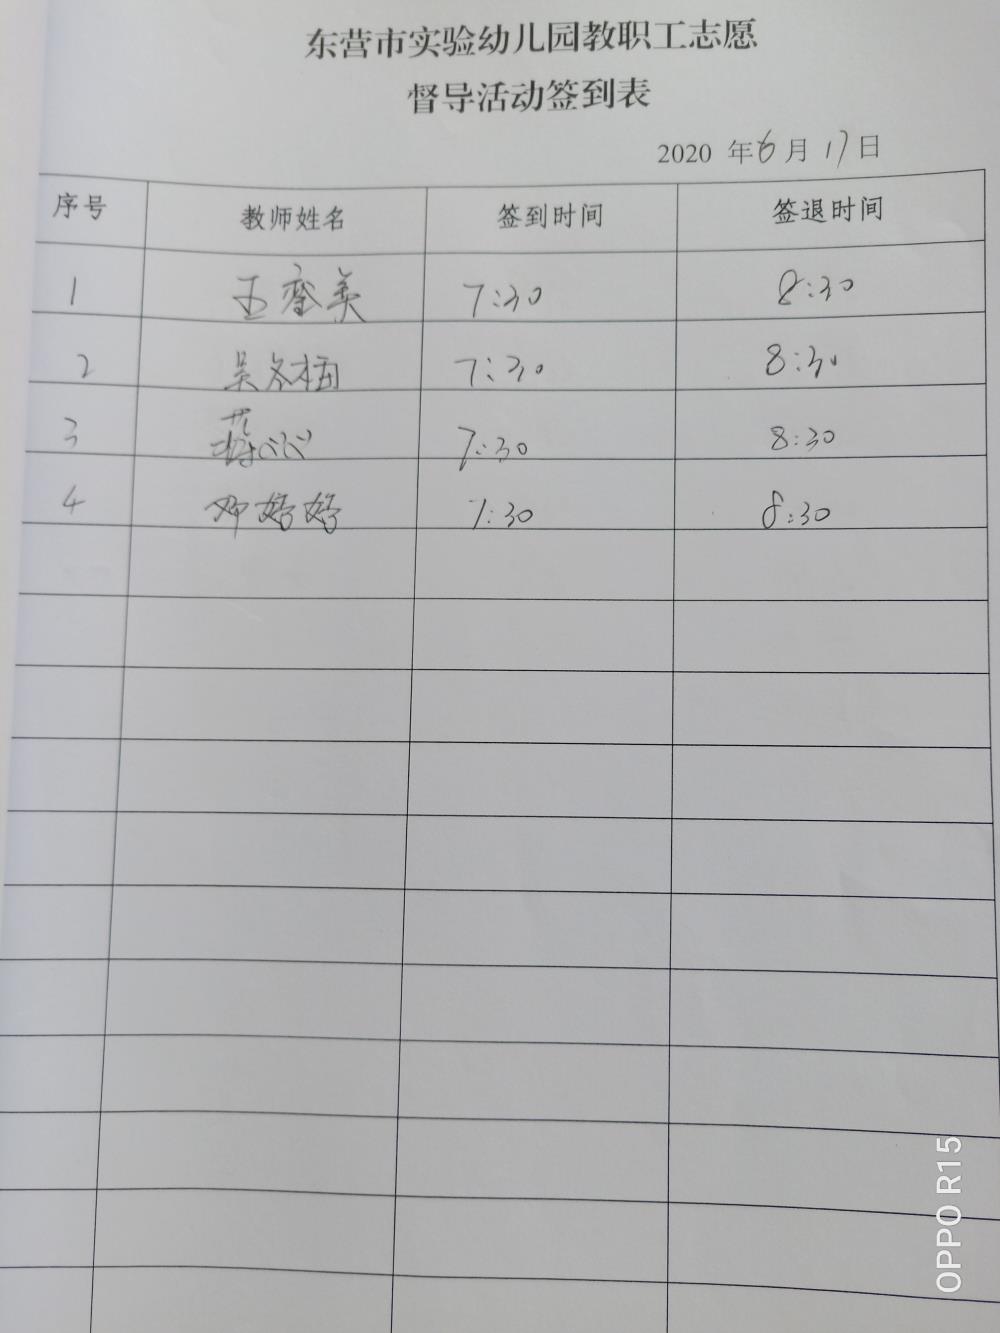 东营市实验幼儿园教职工志愿
督导活动签到表
2020 年6月17日
序号 教师姓名 签到时间 签退时间
1 王 美 7:30 8:30
2 吴冬梅 7:30 8:30
3 蒋沁沁 7:30 8:30
4 邓婷婷 7:30 8:30
OPPO R15